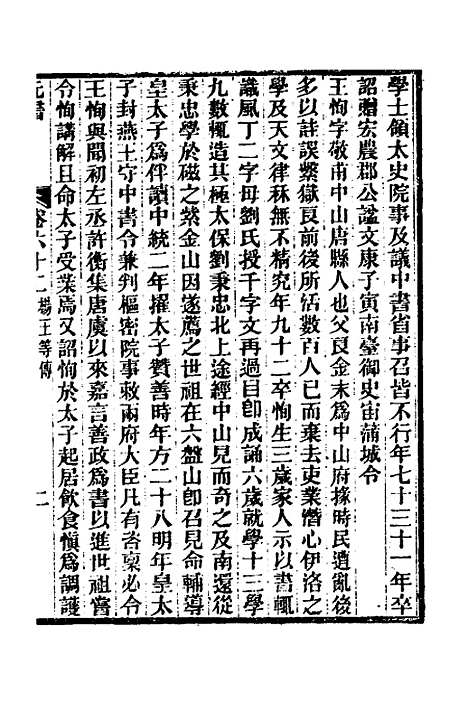 學士領太史院事及議中書省事召皆不行年七十三十一年卒
詔贈宏農郡公諡文康子寅南臺御史宙蒲城令
王恂字敬甫中山唐縣人也父良金末為中山府掾時民遭亂後
多以詿誤繫獄良前後所活數百人已而棄去吏業潛心伊洛之
學及天文律秝無不精究年九十二卒恂生三歲家人示以書輒
識風丁二字母劉氏授千字文再過目卽成誦六歲就學十三學
九數輒造其極太保劉秉忠北上途經中山見而奇之及南還從
秉忠學於磁之紫金山因遂薦之世祖在六盤山卽召見命輔導
皇太子為伴讀中統二年擢太子贊善時年方二十八明年皇太
子封燕王守中書令兼判樞密院事敕兩府大臣凡有咨稟必令
王恂與聞初左丞許衡集唐虞以來嘉言善政為書以進世祖嘗
令恂講解且命太子受業焉又詔恂於太子起居飲食慎為調護
元書 卷六十二 楊王等傳 二